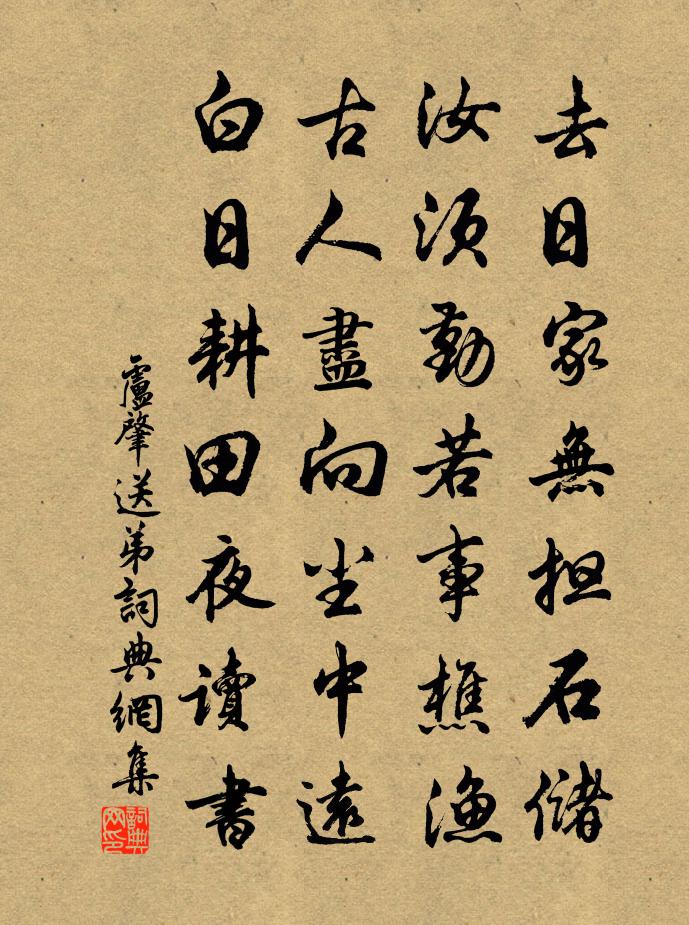 去日家無担石儲
汝須勤若事樵漁
古人盡向尘中遠
白日耕田夜讀書
盧肇送弟詞典網集
詞典網印